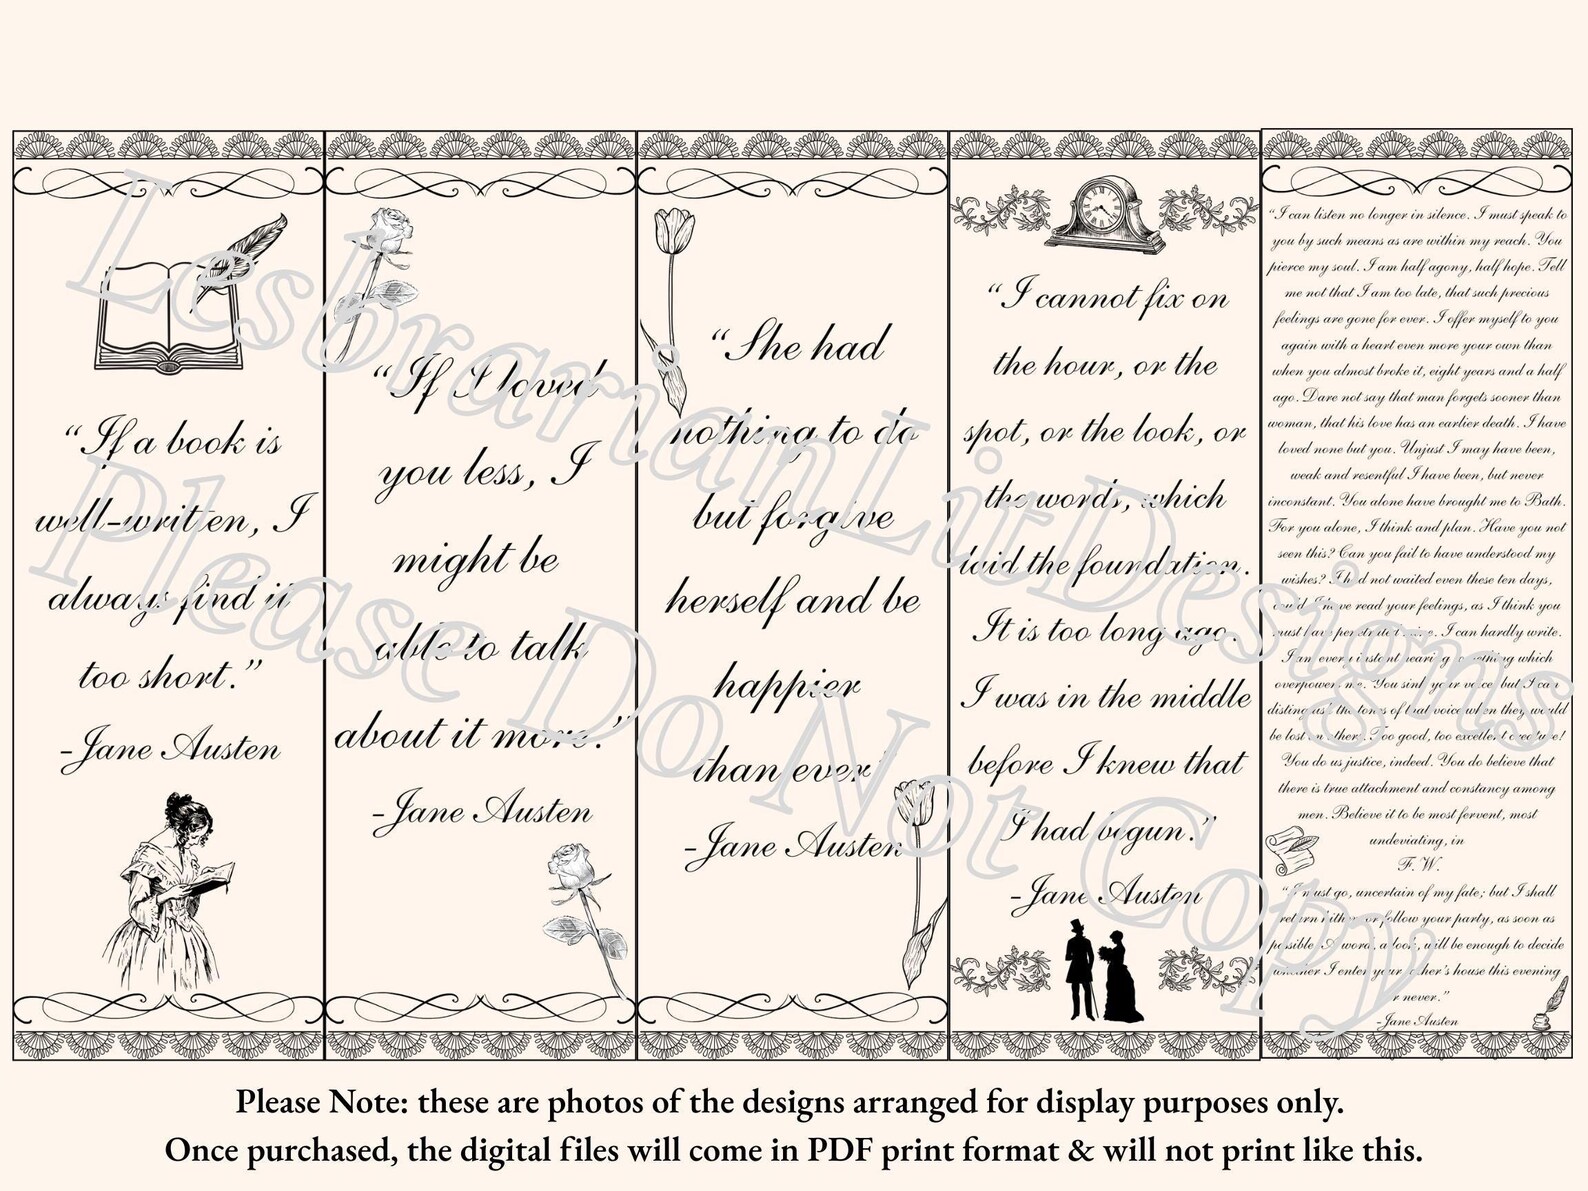 “If a book is
well-written, I
always find it
too short.”
-Jane Austen
“If I loved
you less, I
might be
able to talk
about it more.”
-Jane Austen
“She had
nothing to do
but forgive
herself and be
happier
than ever”
-Jane Austen
“I cannot fix on
the hour, or the
spot, or the look, or
the words, which
laid the foundation.
It is too long ago.
I was in the middle
before I knew that
I had begun.”
-Jane Austen
“I can listen no longer in silence. I must speak to
you by such means as are within my reach. You
pierce my soul. I am half agony, half hope. Tell
me not that I am too late, that such precious
feelings are gone for ever. I offer myself to you
again with a heart even more your own than
when you almost broke it, eight years and a half
ago. Dare not say that man forgets sooner than
woman, that his love has an earlier death. I have
loved none but you. Unjust I may have been,
weak and resentful I have been, but never
inconstant. You alone have brought me to Bath.
For you alone, I think and plan. Have you not
seen this? Can you fail to have understood my
wishes? I had not waited even these ten days,
could I have read your feelings, as I think you
must have penetrated mine. I can hardly write.
I am every instant hearing something which
overpowers me. You sink your voice, but I can
distinguish the tones of that voice when they would
be lost on others. Too good, too excellent creature!
You do us justice, indeed. You do believe that
there is true attachment and constancy among
men. Believe it to be most fervent, most
undeviating, in
F. W.
“I must go, uncertain of my fate; but I shall
return hither, or follow your party, as soon as
possible. A word, a look, will be enough to decide
whether I enter your father's house this evening
or never.”
-Jane Austen
LesbrarianLitDesigns
Please Do Not Copy
Please Note: these are photos of the designs arranged for display purposes only.
Once purchased, the digital files will come in PDF print format & will not print like this.